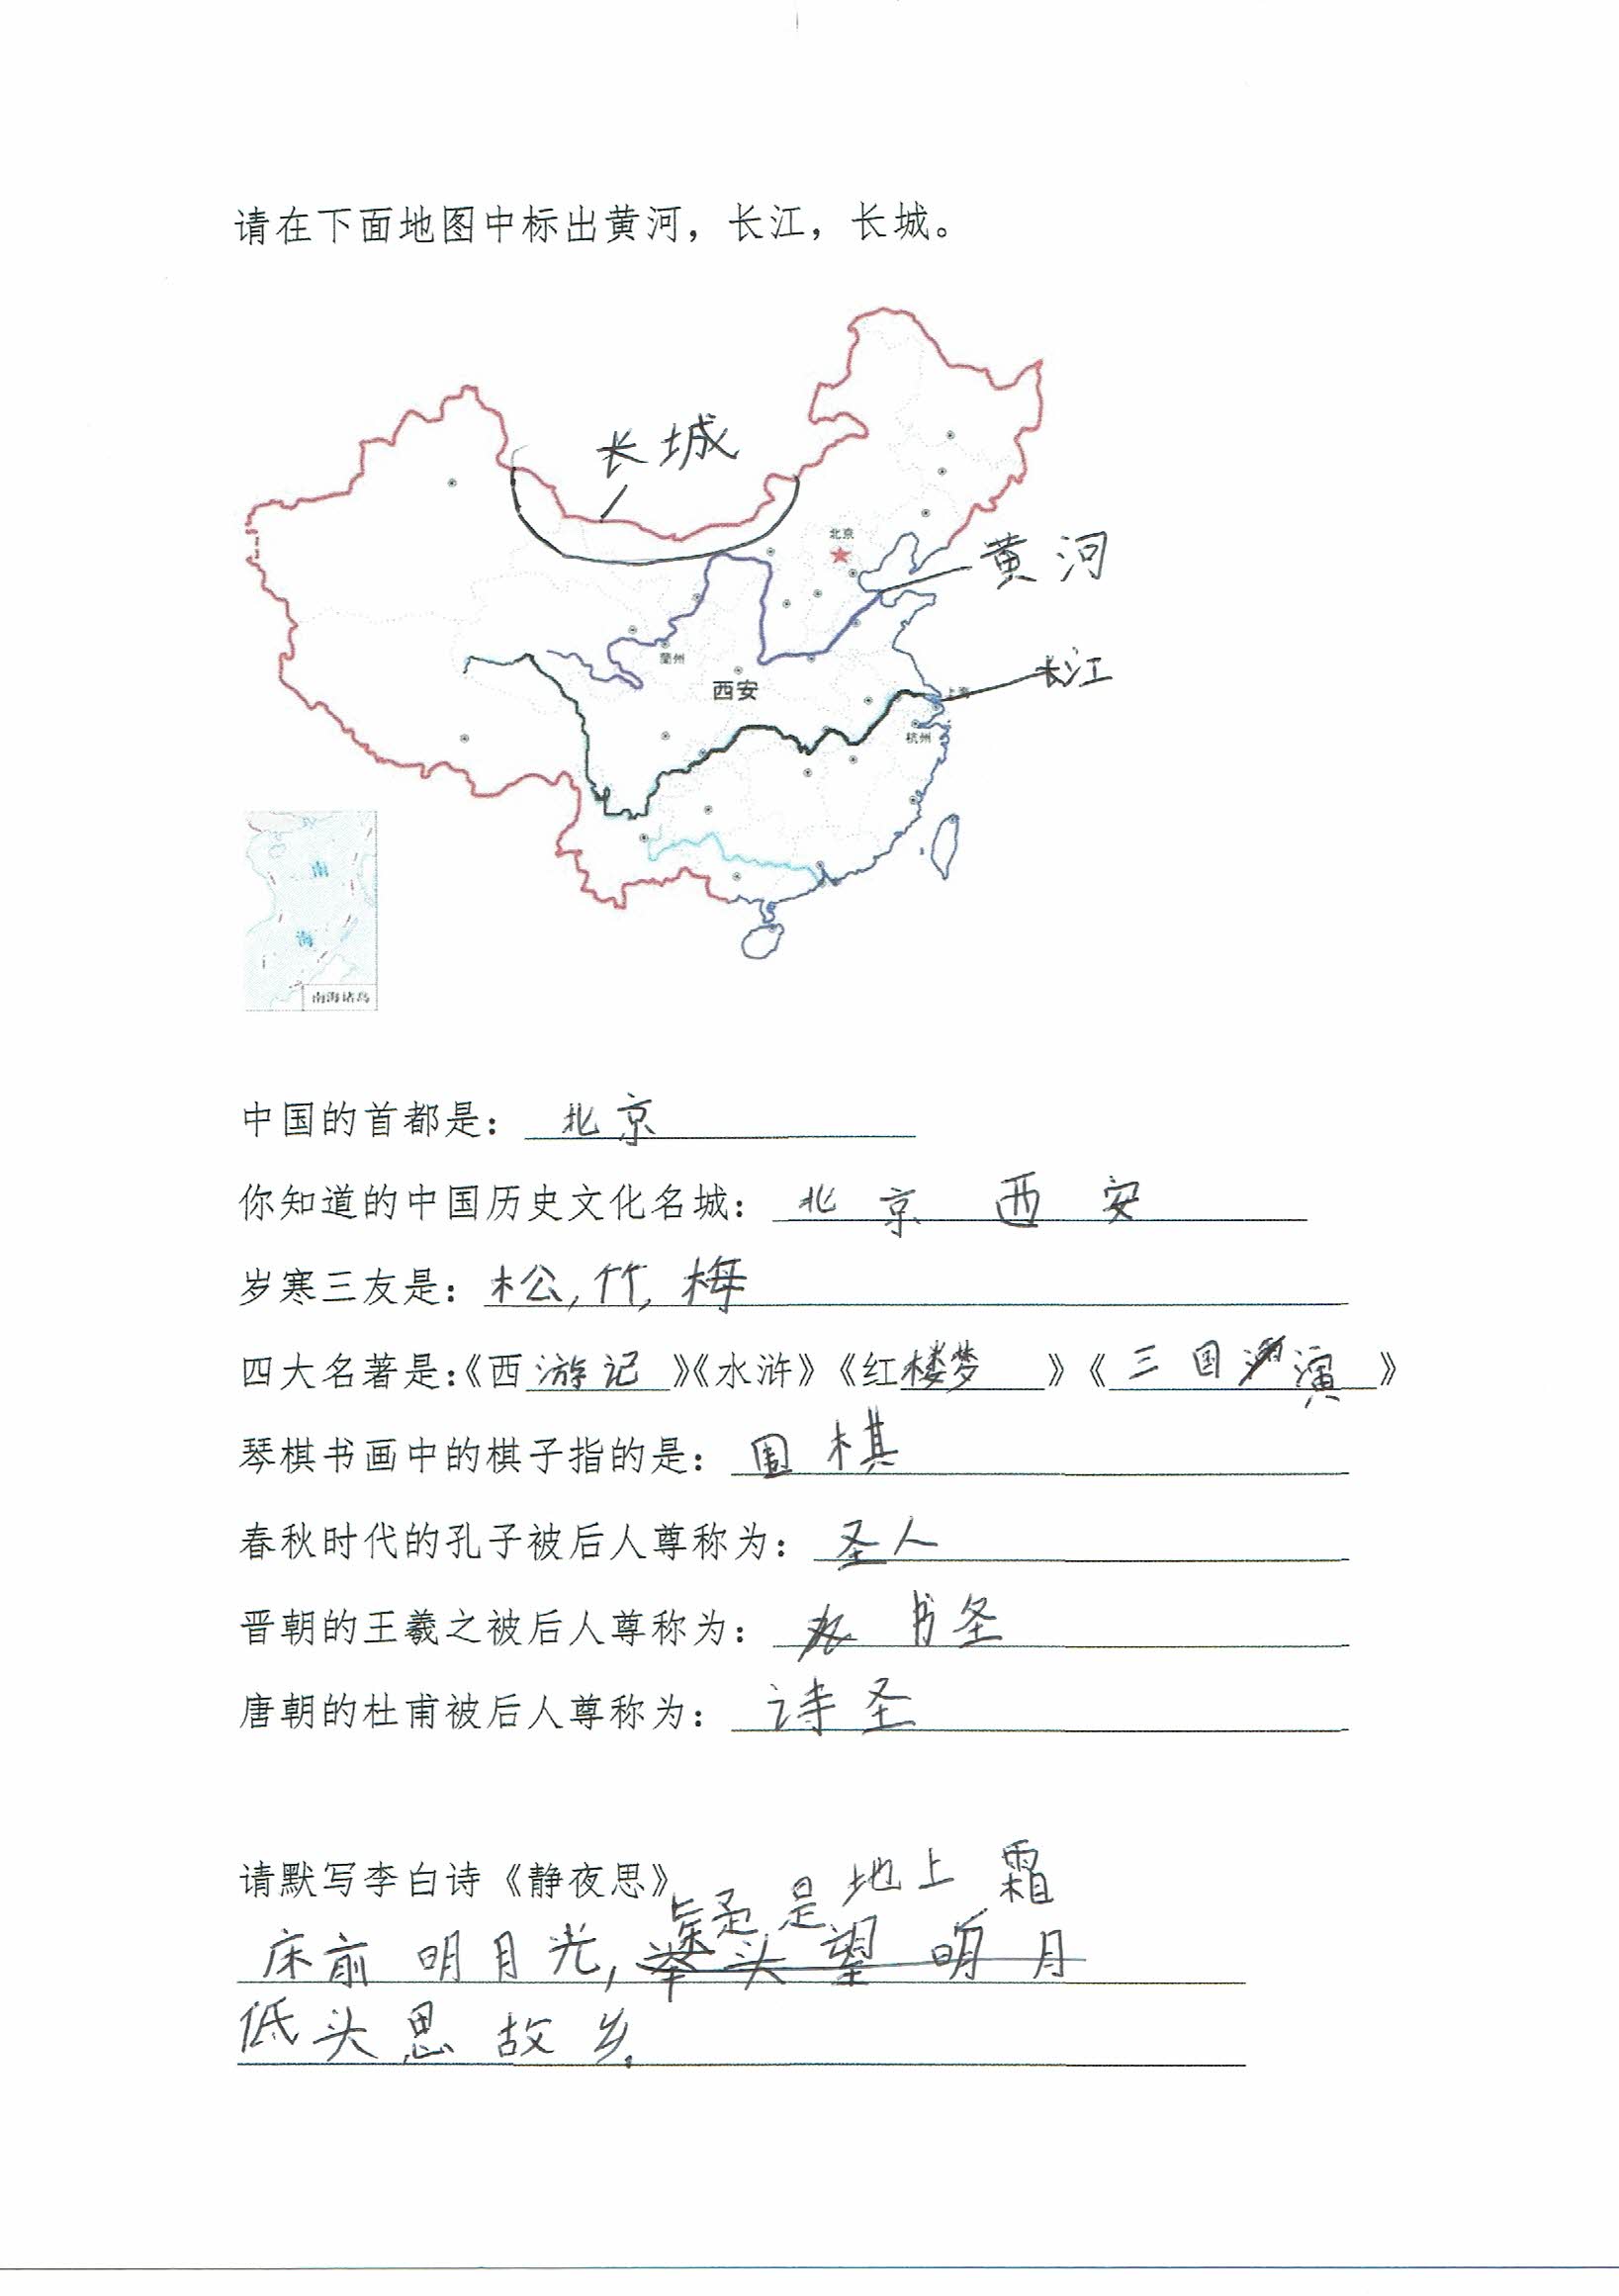 请在下面地图中标出黄河，长江，长城。
长城
北京
黄河
兰州
西安
长江
上海
杭州
南
海
南海诸岛
中国的首都是：北京
你知道的中国历史文化名城：北京 西安
岁寒三友是：松,竹,梅
四大名著是：《西游记》《水浒》《红楼梦》《三国演》
琴棋书画中的棋子指的是：围棋
春秋时代的孔子被后人尊称为：圣人
晋朝的王羲之被后人尊称为：书圣
唐朝的杜甫被后人尊称为：诗圣
请默写李白诗《静夜思》
疑是地上霜
床前明月光,举头望明月
低头思故乡.